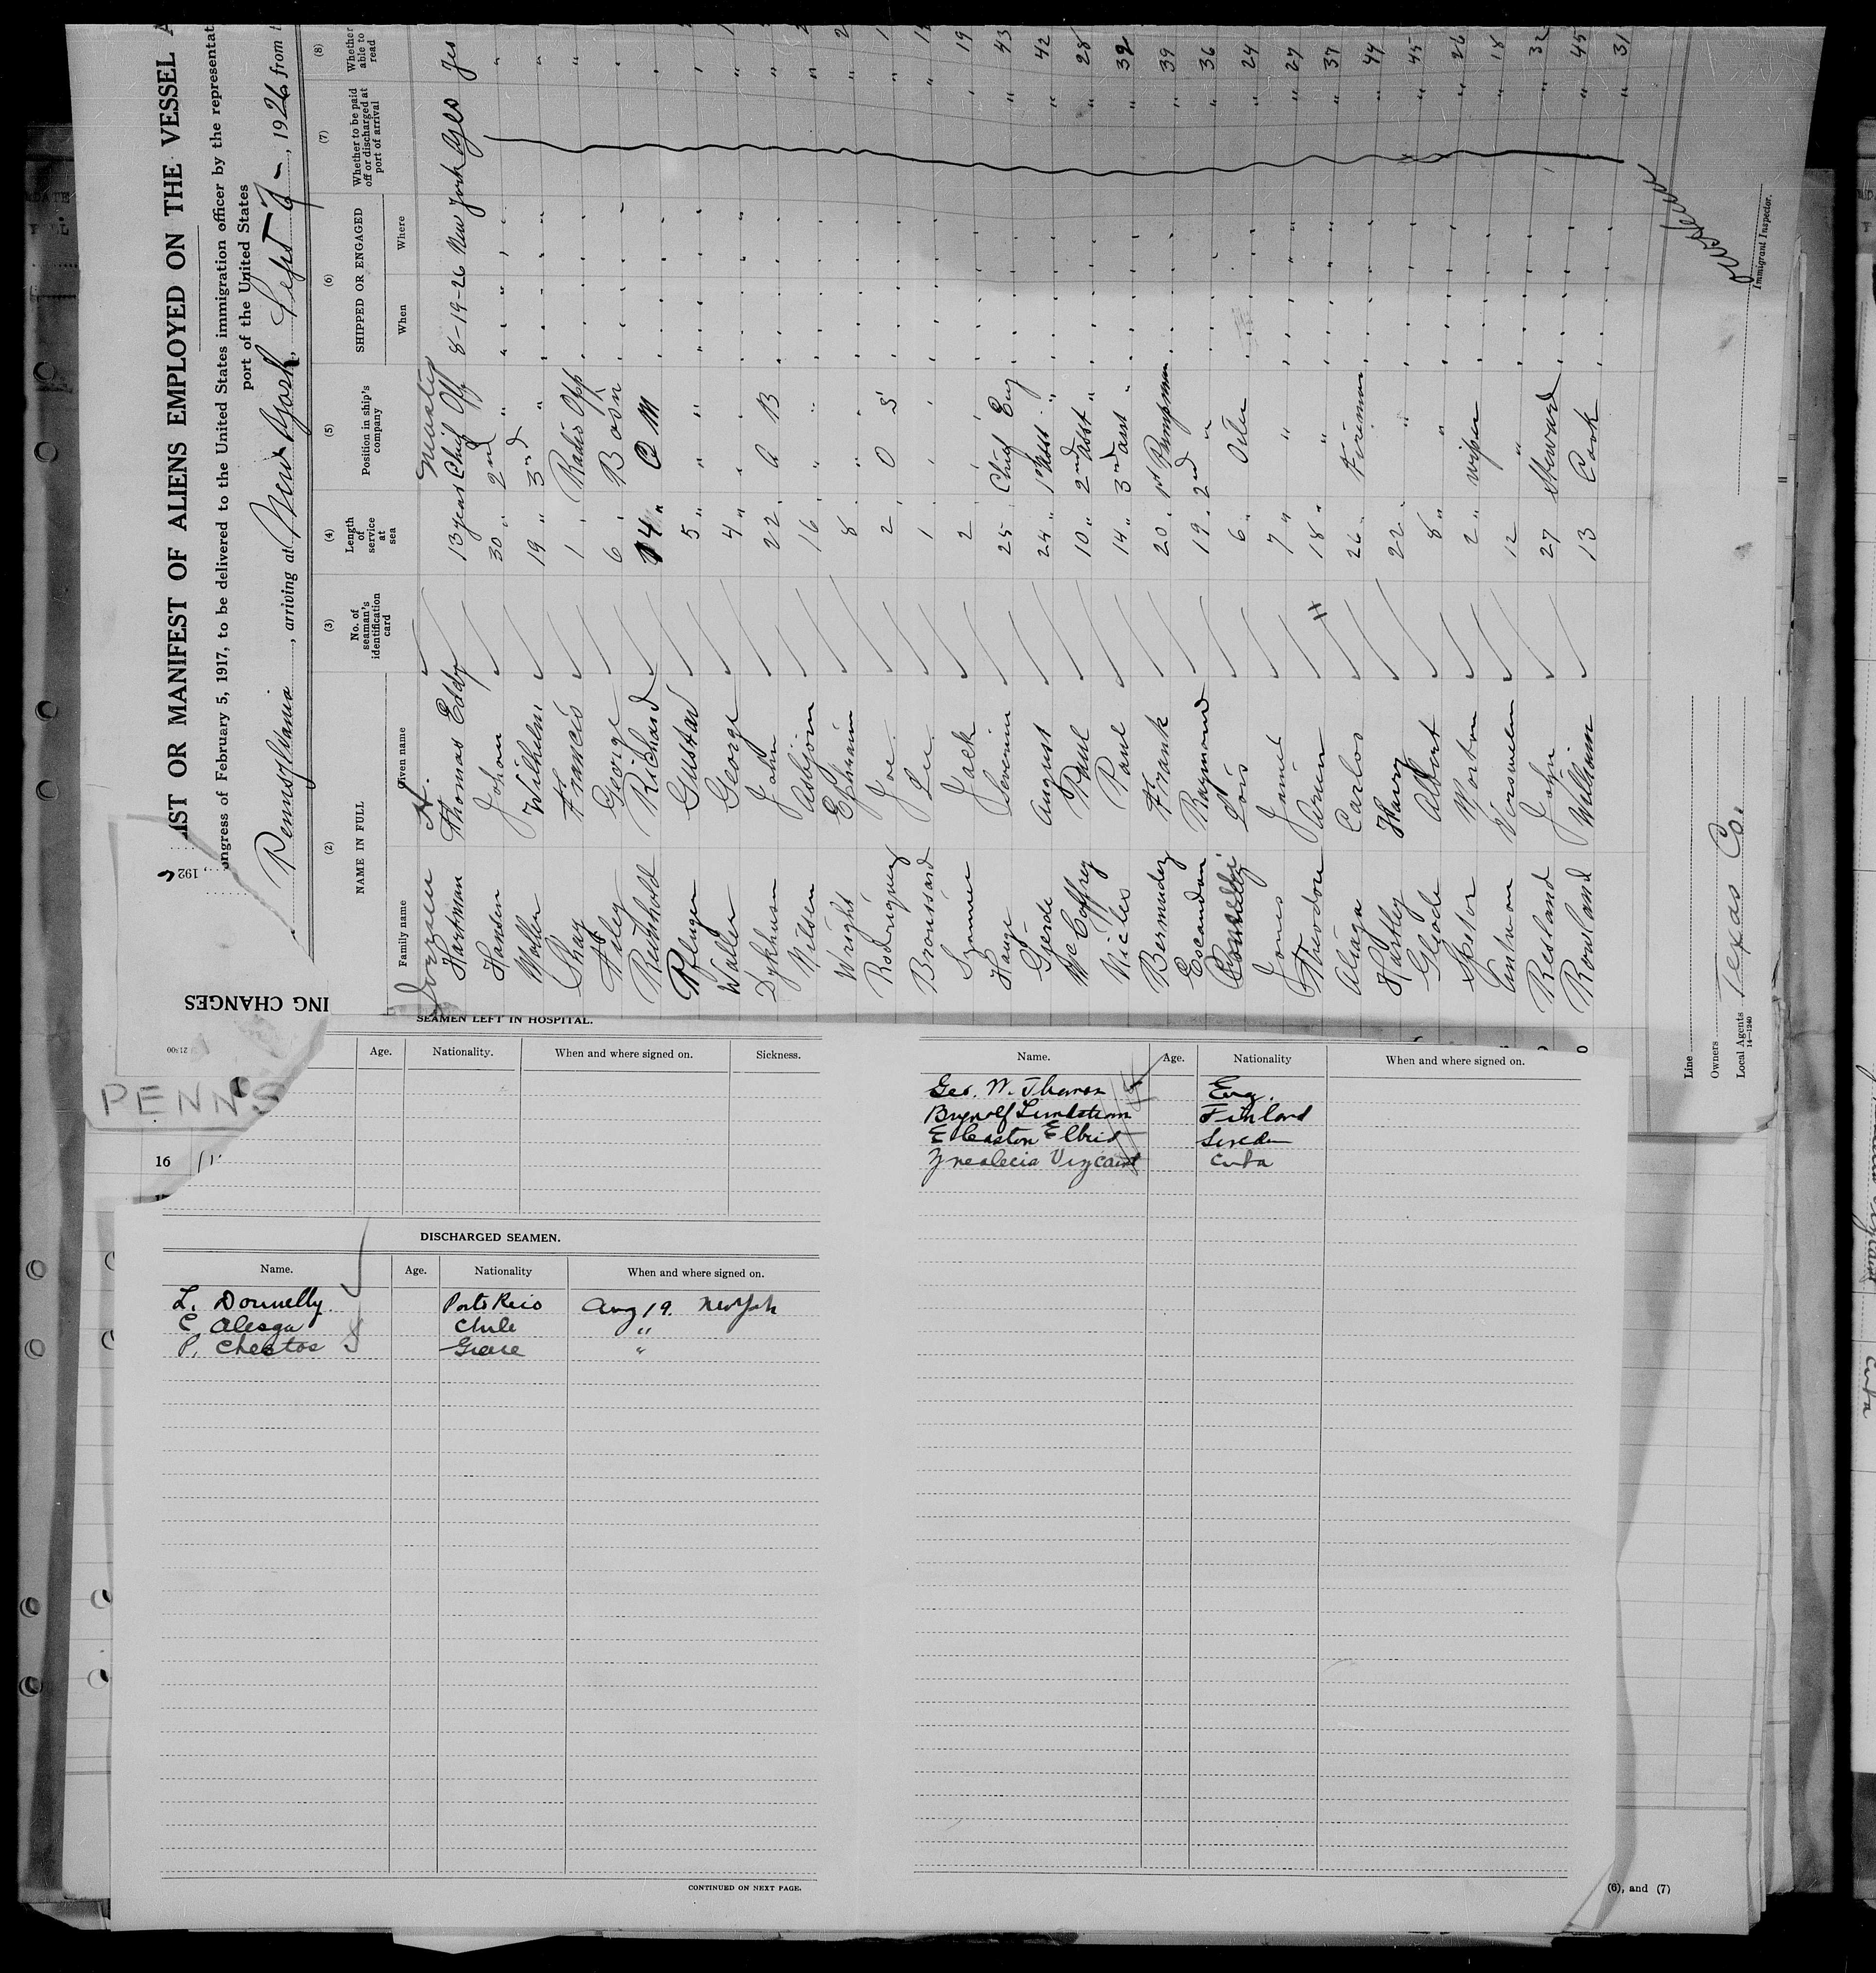 LIST OR MANIFEST OF ALIENS EMPLOYED ON THE VESSEL A
ngress of February 5, 1917, to be delivered to the United States immigration officer by the representat
port of the United States
Pennsylvania, arriving at New York, Sept 7, 1926 from
192
ING CHANGES
(2) (3) (4) (5) (6) (7) (8)
NAME IN FULL
Family name Given name
No. of seaman's identification card
Length of service at sea
Position in ship's company
SHIPPED OR ENGAGED
When Where
Whether to be paid off or discharged at port of arrival
Whether able to read
Master
Hartman Thomas Eddy 13 years Chief Off 8-19-26 New York Yes Yes
Hansen Johan 30 " 2nd "
Moller Wilhelm 19 " 3rd "
Shay Francis 1 Radio Opp
George 6 Bosn
Reinhold Richard 14 " Q M
Pfluger Gustav 5 " "
Waller George 4 "
Dykhusen John 22 A B
Nilsen Asbjörn 16 "
Wright Ephraim 8 "
Rodriguez Joe 2 O S
Broussard Lee 1 19
Jack 2 43
Hauge Severin 25 Chief Eng 42
Gjerde August 24 " 1st Asst " 28
McCaffrey Paul 10 " 2nd Asst " 32
Nicles Paul 14 " 3rd Asst " 39
Bermudez Frank 20 1st Pumpman 36
Escandon Raymond 19 2nd " 24
Louis 6 " Oiler 27
Jones James 7 " " 37
18 " " 44
Aliaga Carlos 26 Fireman 45
Hartley Harry 22 " 26
Albert 8 " " 18
Spector Morton 2 " Wiper 32
12 " 45
Restand John 27 Steward 31
Rowland William 13 Cook
Immigrant Inspector.
Line
Owners Texas Co.
Local Agents
14—1240
PENNS
16
SEAMEN LEFT IN HOSPITAL.
Age. Nationality. When and where signed on. Sickness.
DISCHARGED SEAMEN.
Name. Age. Nationality When and where signed on.
L. Donnelly Porto Rico Aug 19. New York
C Alesga Chile "
P. Chestos Greece "
CONTINUED ON NEXT PAGE.
Name. Age. Nationality When and where signed on.
Geo. W. Thomas Eng.
Brynolf Lundstrom Finland
E Caston Elbrid Sweden
Vizcaino Cuba
(6), and (7)